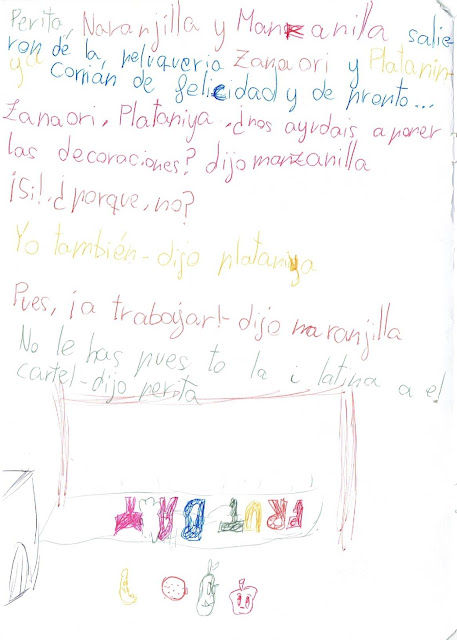 Perita, Naranjilla y Manzanilla salie
ron de la, peluqueria Zanaori y Platanin
ya Corrian de felicidad y de pronto...
Zanaori, Plataniya ¿nos ayudais a poner
las decoraciones? dijo manzanilla
¡Si!, ¿porque, no?
Yo también- dijo plataniya
Pues, ¡a trabajar!- dijo naranjilla
No le has pues to la i latina a el
cartel-dijo perita